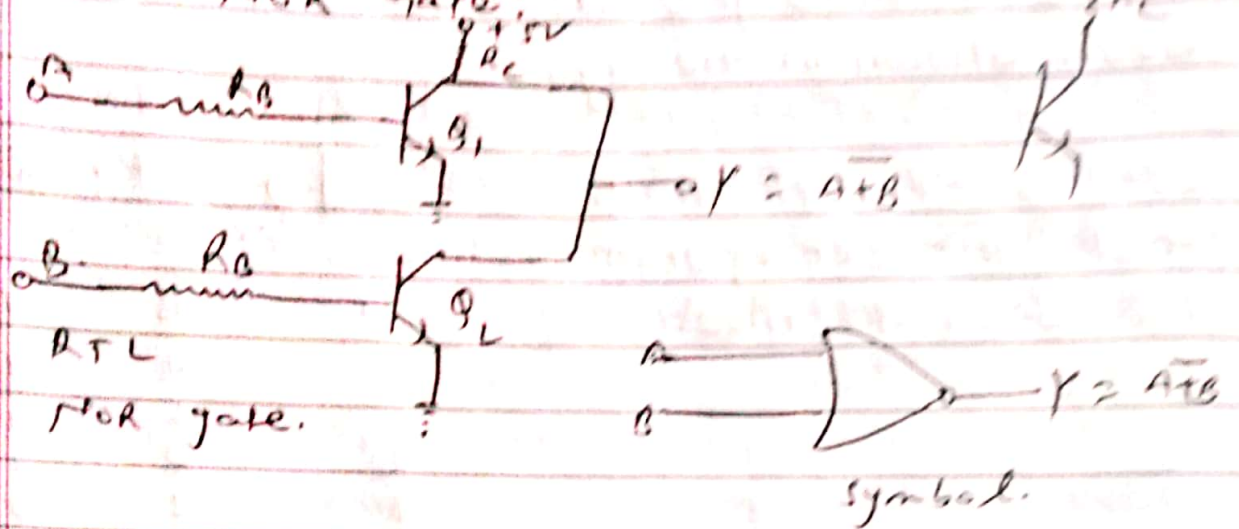 NOR gate.
+5V
RC
A
RB
Q1
Y = A+B̅
B
RB
Q2
RTL
NOR gate.
A
B
Y = A+B̅
symbol.